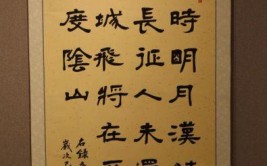 時明月漢
長征人未還
城飛將在
度陰山
右錄
歲次